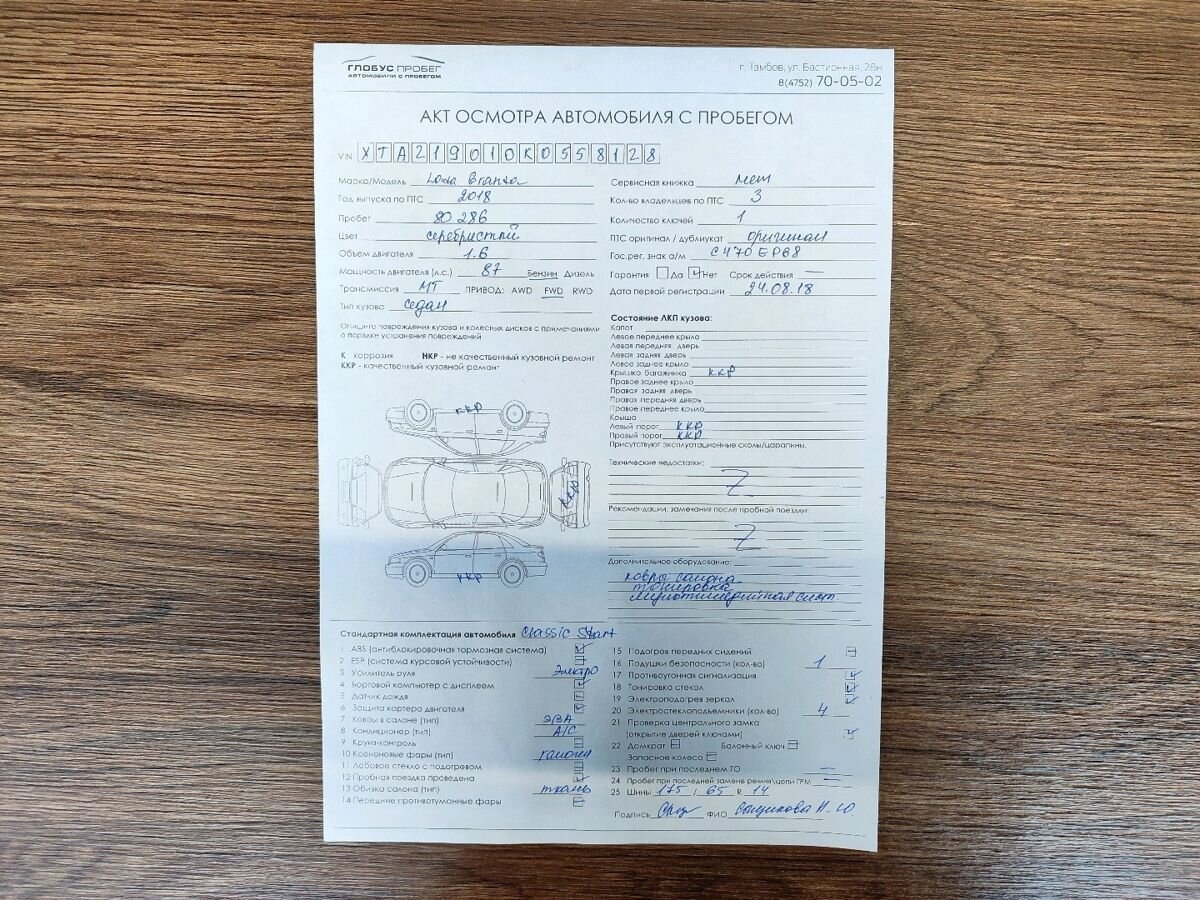 ГЛОБУС ПРОБЕГ
АВТОМОБИЛИ С ПРОБЕГОМ
г. Тамбов, ул. Бастионная, 28н
8(4752) 70-05-02
АКТ ОСМОТРА АВТОМОБИЛЯ С ПРОБЕГОМ
VIN XTA219010K0558128
Марка/Модель Lada Granta
Год выпуска по ПТС 2018
Пробег 80 286
Цвет серебристый
Объем двигателя 1.6
Мощность двигателя (л.с.) 87 Бензин Дизель
Трансмиссия МТ ПРИВОД: AWD FWD RWD
Тип кузова седан
Опишите повреждения кузова и колесных дисков с примечаниями
о порядке устранения повреждений
К коррозия НКР - не качественный кузовной ремонт
ККР - качественный кузовной ремонт
ККР
ККР
ККР
Сервисная книжка нет
Кол-во владельцев по ПТС 3
Количество ключей 1
ПТС оригинал / дубликат оригинал
Гос.рег. знак а/м С470ЕР68
Гарантия Да Нет Срок действия —
Дата первой регистрации 24.08.18
Состояние ЛКП кузова:
Капот
Левое переднее крыло
Левая передняя дверь
Левая задняя дверь
Левое заднее крыло
Крышка багажника ККР
Правое заднее крыло
Правая задняя дверь
Правая передняя дверь
Правое переднее крыло
Крыша
Левый порог ККР
Правый порог ККР
Присутствуют эксплуатационные сколы/царапины.
Технические недостатки:
Рекомендации, замечания после пробной поездки:
Дополнительное оборудование:
ковры салона
тонировка
мультимедийная сист.
Стандартная комплектация автомобиля Classic Start
1 ABS (антиблокировочная тормозная система)
2 ESP (система курсовой устойчивости)
3 Усилитель руля Электро
4 Бортовой компьютер с дисплеем
5 Датчик дождя
6 Защита картера двигателя
7 Ковры в салоне (тип) ЭВА
8 Кондиционер (тип) А/С
9 Круиз-контроль
10 Ксеноновые фары (тип) галоген
11 Лобовое стекло с подогревом
12 Пробная поездка проведена
13 Обивка салона (тип) ткань
14 Передние противотуманные фары
15 Подогрев передних сидений
16 Подушки безопасности (кол-во) 1
17 Противоугонная сигнализация
18 Тонировка стекол
19 Электроподогрев зеркал
20 Электростеклоподъемники (кол-во) 4
21 Проверка центрального замка
(открытие дверей ключами)
22 Домкрат Балонный ключ
Запасное колесо
23 Пробег при последнем ТО —
24 Пробег при последней замене ремня/цепи ГРМ —
25 Шины 175 / 65 R 14
Подпись ФИО